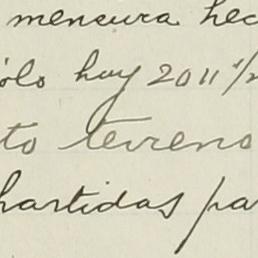 mensura hec
ólo hay 2011 1/2
to terreno
partidas pa